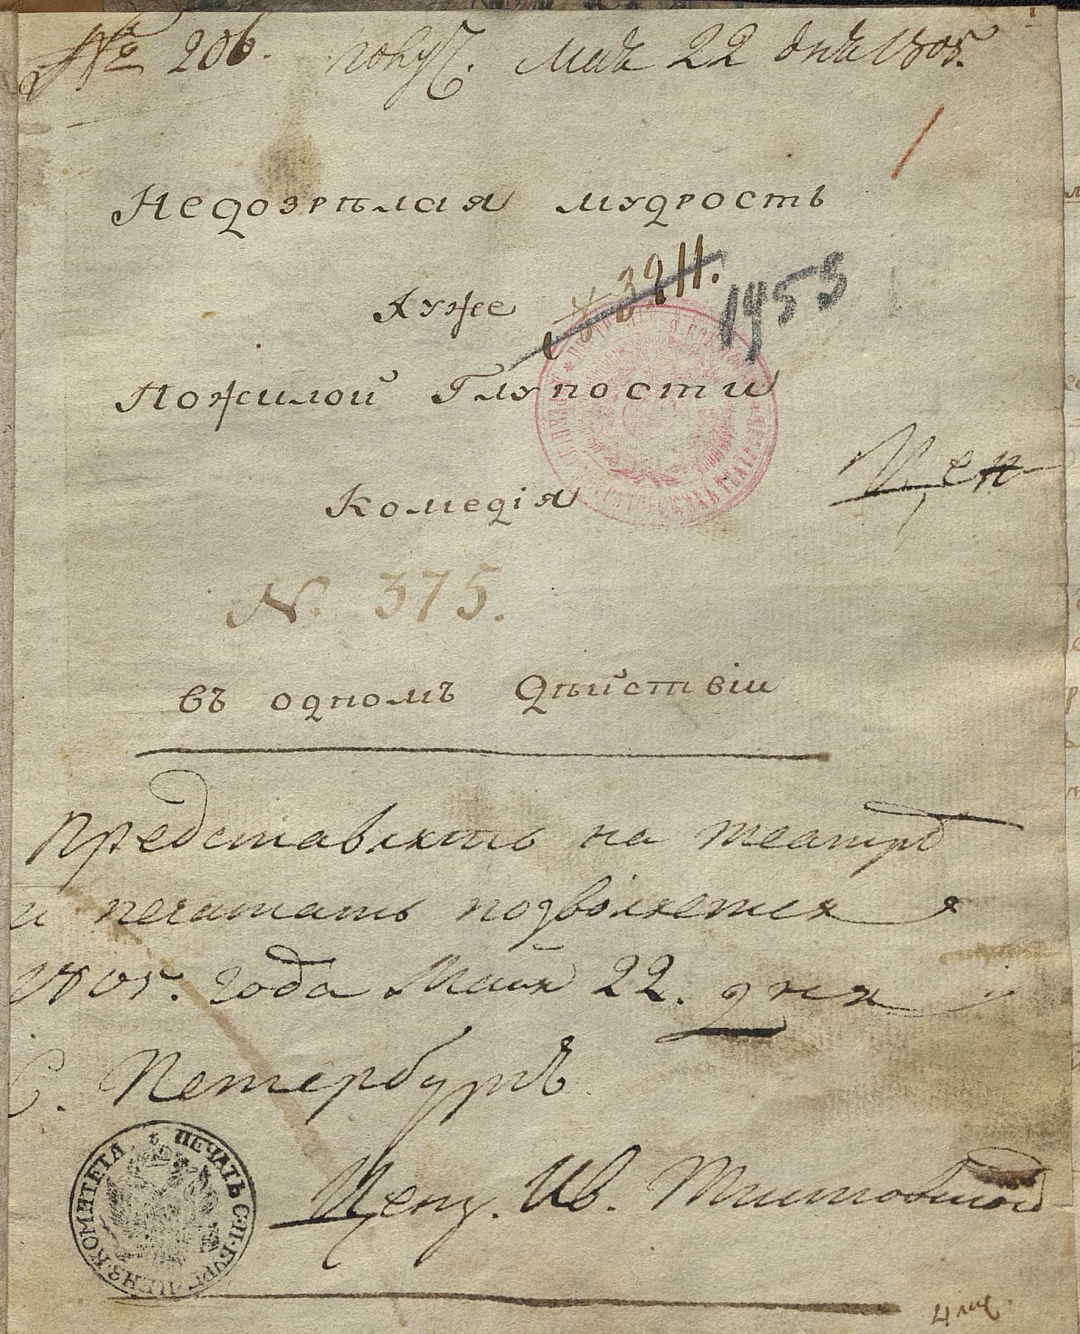 № 206. получ. Маія 22 дня 1805.
Недозрѣлая мудрость
Хуже
3211.
1953
Пожилой Глупости
Комедія
Цен
N. 375.
въ одномъ Дѣйствіи
Представлять на театрѣ
и печатать позволяется
1805. года Маія 22. дня
С. Петербургъ
ПЕЧАТЬ С.П.БУРГ. ЦЕНЗ. КОМИТЕТА
Ценз. Ив. Тимковской